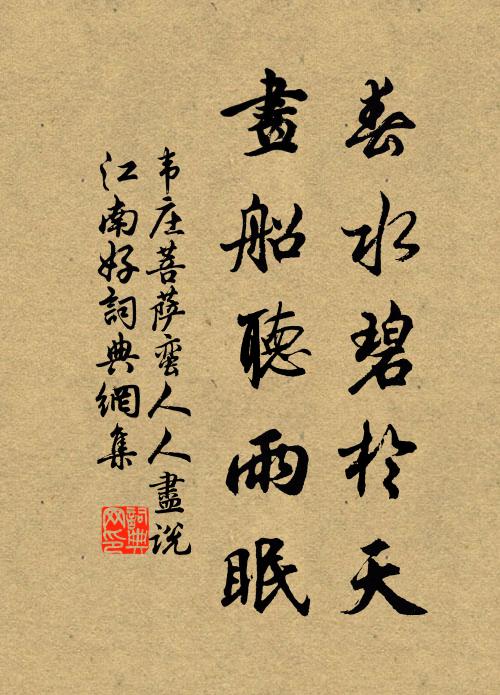 春水碧於天
畫船聽雨眠
韦庄菩萨蛮人人盡说
江南好詞典網集
詞典
网印